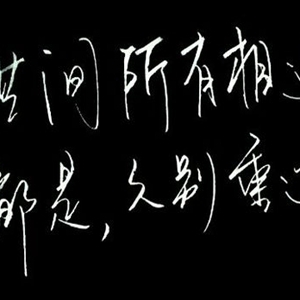 世间所有相
都是,久别重